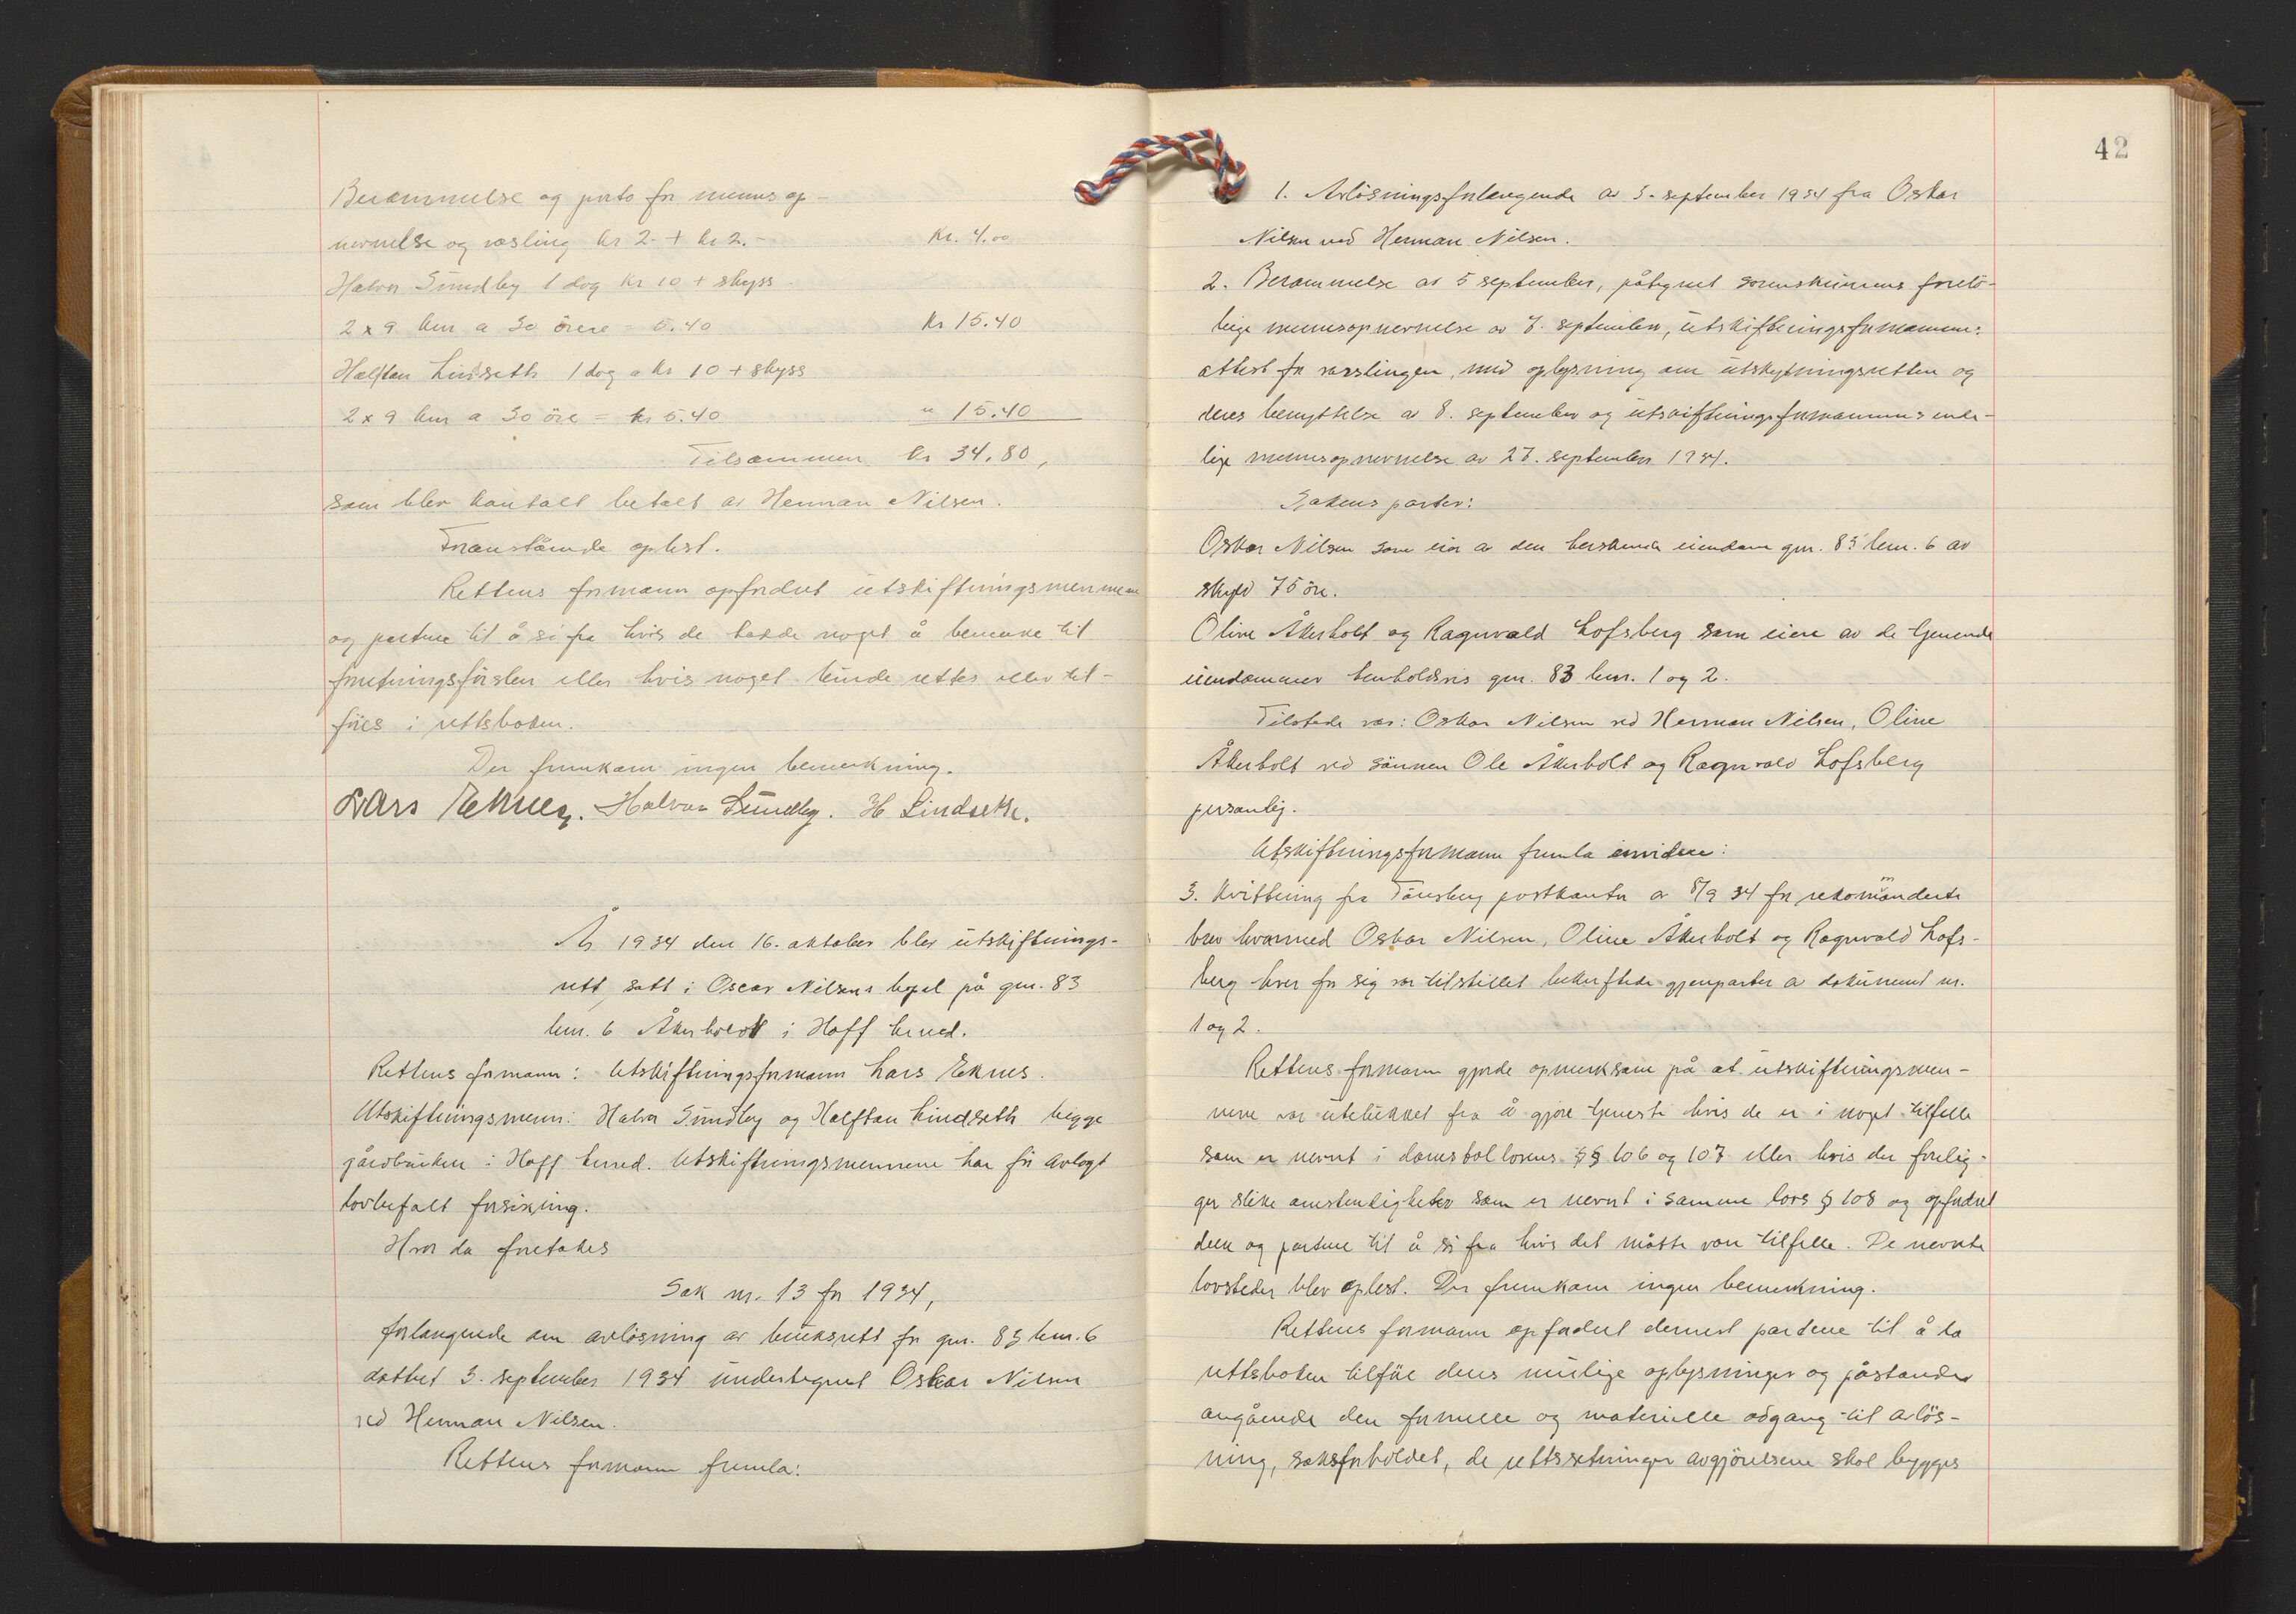 Berammelse og porto for mennsop-
nevnelse og varsling kr 2.- + kr 2.- Kr. 4.00
Halvor Sundby 1 dag kr 10 + skyss
2 x 9 km a 30 öre = 5.40 Kr 15.40
Halftan Lindseth 1 dag a kr 10 + skyss
2 x 9 km a 30 öre = kr 5.40 " 15.40
Tilsammen kr 34.80,
som blev kontalt betalt av Herman Nilsen.
Franstående oplest.
Rettens formann opfordret utskiftningsmennene
og partene til å si fra hvis de hadde noget å bemerke til
forretningsförslen eller hvis noget burde rettes eller til-
föies i rettsboken.
Der fremkom ingen bemerkning.
Lars Eknes. Halvor Sundby. H Lindseth.
År 1934 den 16. oktober blev utskiftnings-
rett satt i Oscar Nilsens bopel på gnr. 83
bnr. 6 Åkerholdt i Hoff herred.
Rettens formann: Utskiftningsformann Lars Eknes.
Utskiftningsmenn: Halvor Sundby og Halftan Lindseth begge
gårdbruker i Hoff herred. Utskiftningsmennene har för avlagt
lovbefalt forsikring.
Hvor da foretokes
Sak nr. 13 for 1934,
forlangende om avlösning av bruksrett for gnr. 83 bnr. 6
dattert 3. september 1934 undertegnet Oskar Nilsen
ved Herman Nilsen.
Rettens formann fremla:
42
1. Avlösningsforlangende av 3. september 1934 fra Oskar
Nilsen ved Herman Nilsen.
2. Berammelse av 5 september, påtegnet sorenskriverens forelö-
bige mennsopnevnelse av 7. september, utskiftningsformannens
attest for varslingen, med oplysning om utskytningsretten og
deres benyttelse av 8. september og utskiftningsformannens ende-
lige mennsopnevnelse av 27. september 1934.
Sakens parter:
Oskar Nilsen som eier av den herskende eiendom gnr. 83 bnr. 6 av
skyld 75 öre.
Oline Åkerholt og Ragnvald Lofsberg som eiere av de tjenende
eiendommer henholdsvis gnr. 83 bnr. 1 og 2.
Tilstede var: Oskar Nilsen ved Herman Nilsen, Oline
Åkerholt ved sönnen Ole Åkerholt og Ragnvald Lofsberg
personlig.
Utskiftningsformann fremla envidere:
3. Kvittering fra Tönsberg postkontor av 8/9 34 for rekommanderte
brev hvormed Oskar Nilsen, Oline Åkerholt og Ragnvald Lofs-
berg hver for sig var tilstillet bekreftede gjenparter av dokument nr.
1 og 2.
Rettens formann gjorde opmerksom på at utskiftningsmen-
nene var utelukket fra å gjöre tjeneste hvis de er i noget tilfelle
som er nevnt i domstollovens §§ 106 og 107 eller hvis der forelig-
ger slike omstendigheter som er nevnt i samme lovs § 108 og opfordret
dem og partene til å si fra hvis det måtte være tilfelle. De nevnte
lovsteder blev oplest. Der fremkom ingen bemerkning.
Rettens formann opfordret dernest partene til å la
rettsboken tilföie deres mulige oplysninger og påstander
angående den formelle og materielle adgang til avlös-
ning, saksforholdet, de rettssetninger avgjörelsene skal bygges